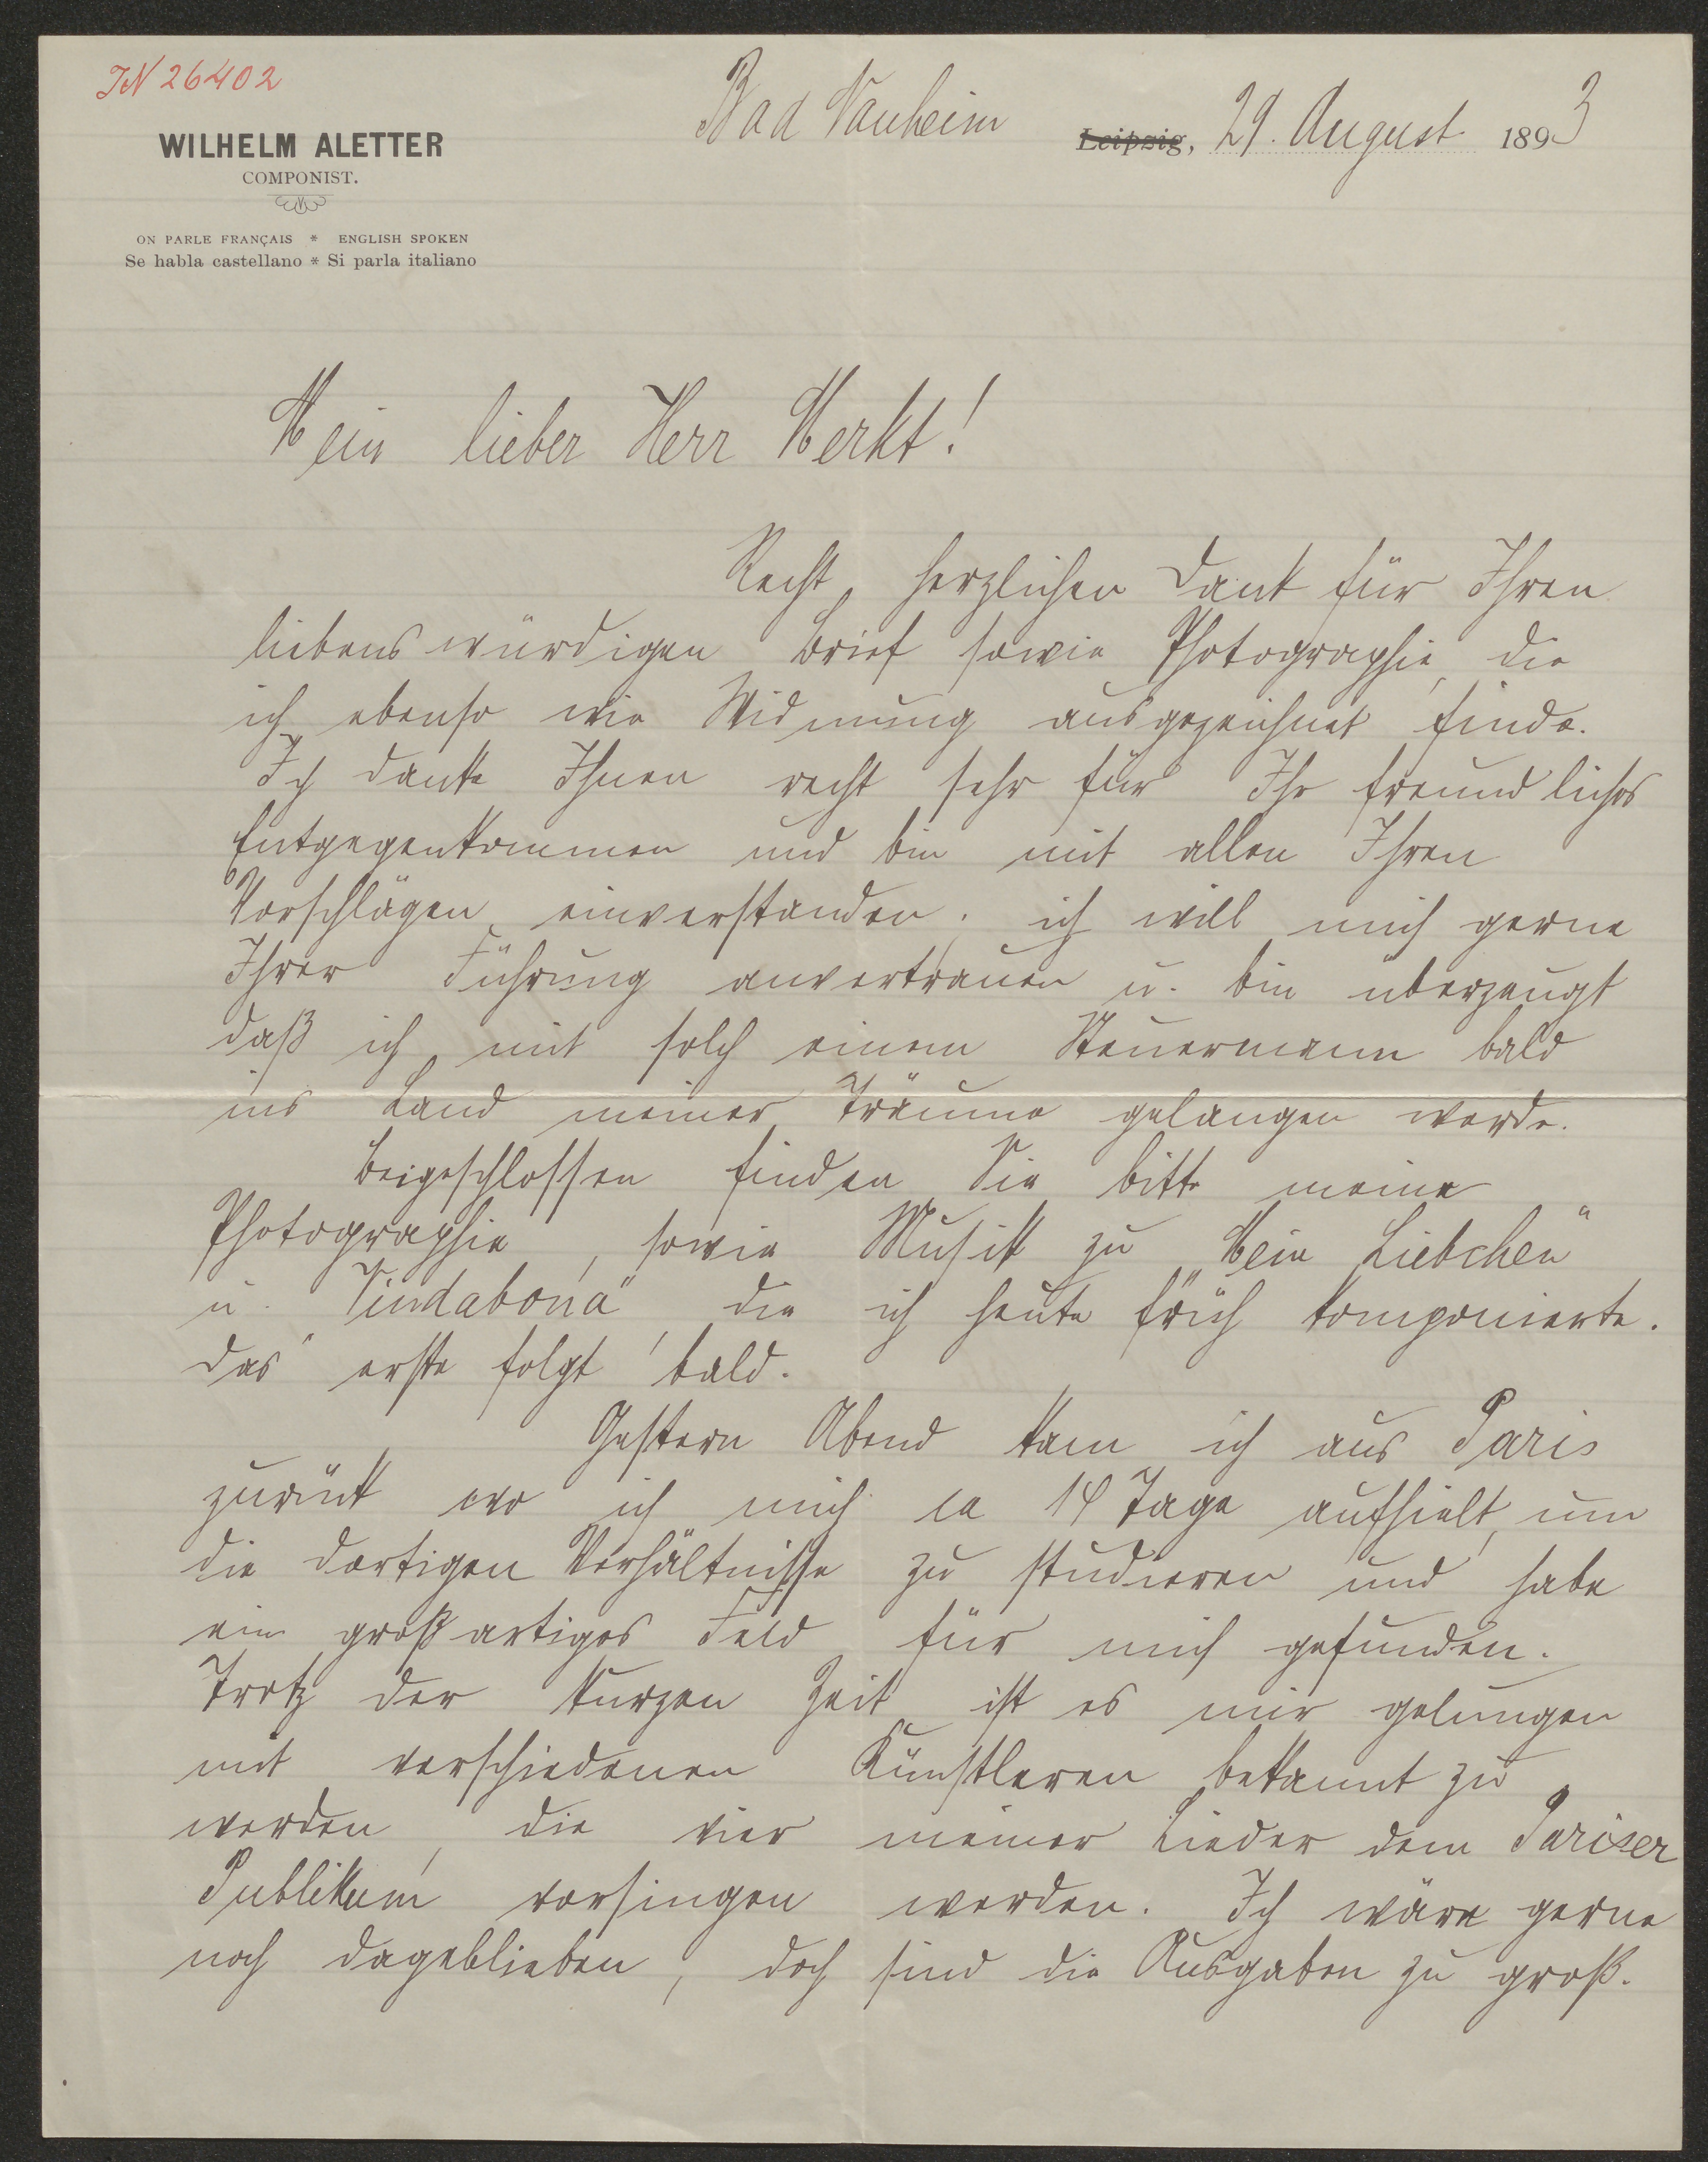 IN 26402
WILHELM ALETTER
COMPONIST.
ON PARLE FRANÇAIS * ENGLISH SPOKEN
Se habla castellano * Si parla italiano
Bad Nauheim Leipzig, 29. August 1893
Mein lieber Herr Merkt!
Recht herzlichen Dank für Ihren
liebenswürdigen Brief sowie Photographie, die
ich ebenso wie Widmung ausgezeichnet finde.
Ich danke Ihnen recht sehr für Ihr freundliches
Entgegenkommen und bin mit allen Ihren
Vorschlägen einverstanden; ich will mich gerne
Ihrer Führung anvertrauen u. bin überzeugt
daß ich mit solch einem Steuermann bald
ins Land meiner Träume gelangen werde.
Beigeschlossen finden Sie bitte meine
Photographie, sowie Musik zu „Mein Liebchen“
u. „Vindabona“ die ich heute früh komponierte.
Das erste folgt bald.
Gestern Abend kam ich aus Paris
zurück wo ich mich ca 14 Tage aufhielt, um
die dortigen Verhältnisse zu studieren und habe
ein großartiges Feld für mich gefunden.
Trotz der kurzen Zeit ist es mir gelungen
mit verschiedenen Künstleren bekannt zu
werden, die vier meiner Lieder dem Pariser
Publikum vorsingen werden. Ich wäre gerne
noch dageblieben, doch sind die Ausgaben zu groß.